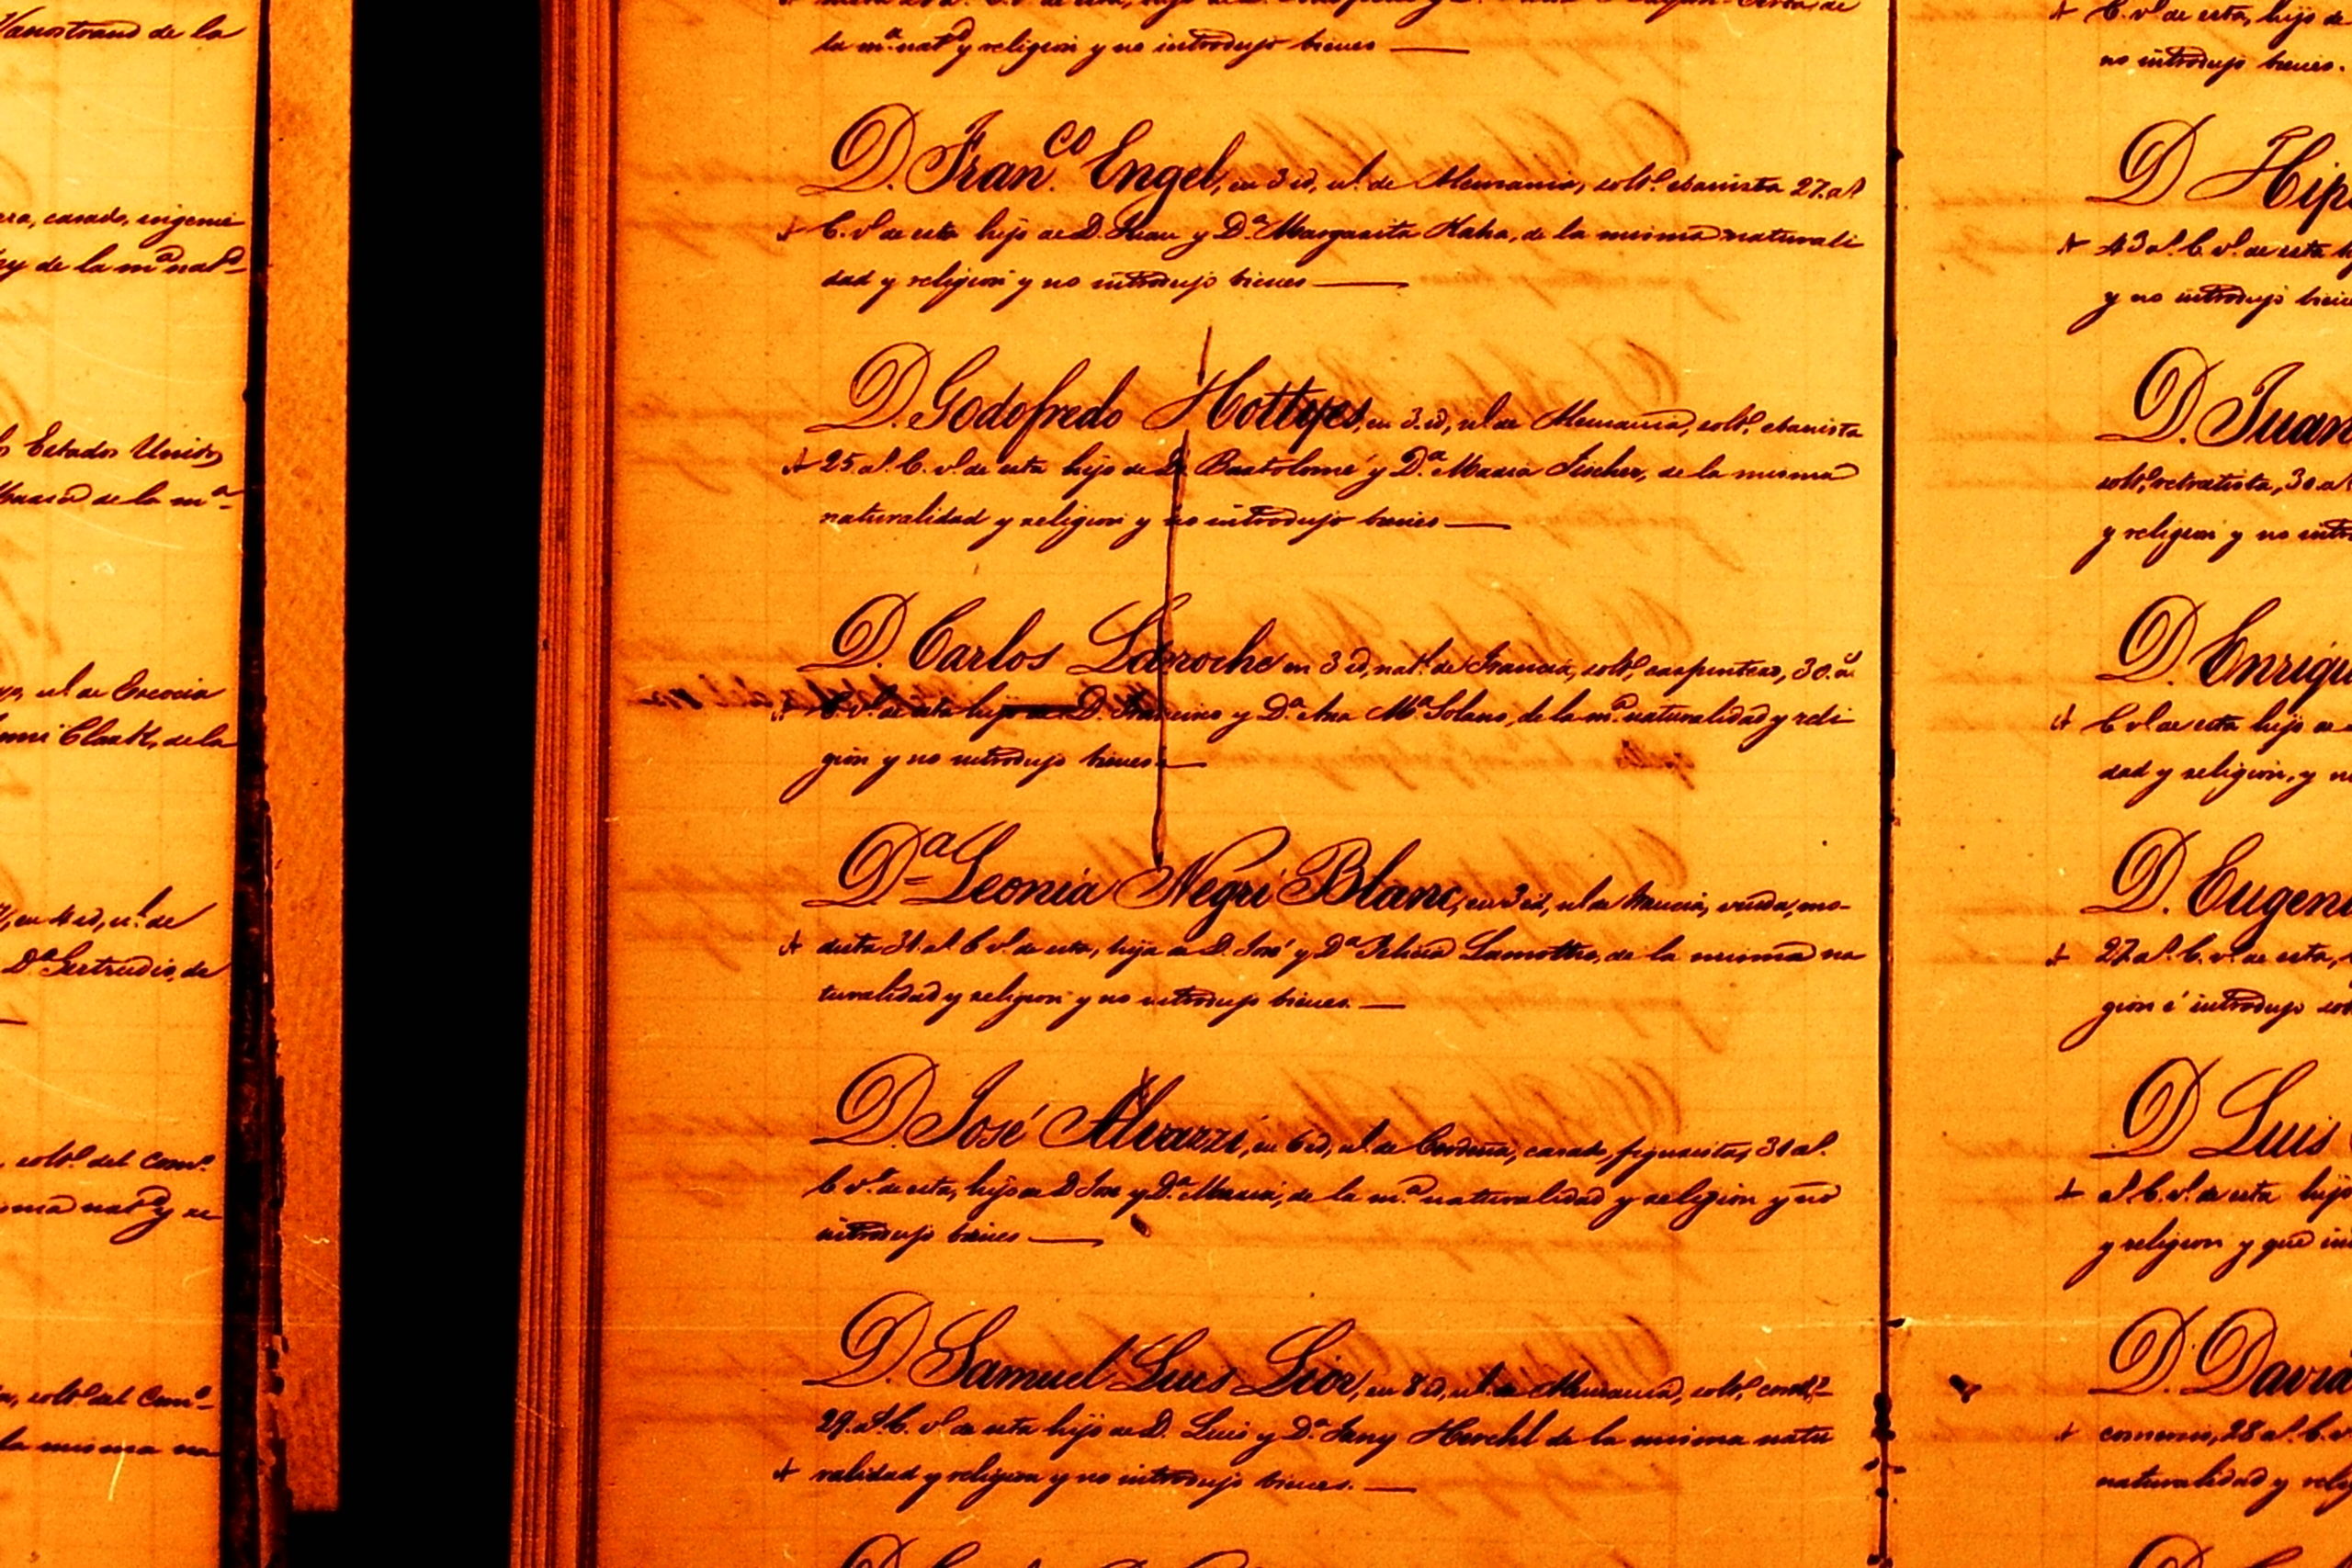 Vanostrand de la
era, casado, ingenie
y de la m.ª nat.d
Estados Unidos
Maria de la m.ª
n.l de Escocia
Clark, de la
en 4 id, n.l de
D.ª Gertrudis, de
solt.º del Com.º
nat.d y re
solt.º del Com.º
la misma na
la m.ª nat.d y religion y no introdujo bienes
D. Fran.co Engel, en 3 id, n.l de Alemania, solt.º ebanista 27. a.s
C. v.l de esta hijo de D. Juan y D.ª Margarita Kaha, de la misma naturali
dad y religion y no introdujo bienes
D. Godofredo Hottyes, en 3. id, n.l de Alemania, solt.º ebanista
25 a.s C. v.l de esta hijo de D. Bartolomé y D.ª Maria Fischer, de la misma
naturalidad y religion y no introdujo bienes
D. Carlos Laroche en 3 id, nat.l de Francia, solt.º carpintero, 30. a.s
C. v.l de esta hijo de D. y D.ª Ana M.ª Solano, de la m.ª naturalidad y reli
gion y no introdujo bienes
D.ª Leonia Negri Blanc, en 3 id, n.l de Francia, viuda, mo-
dista 31. a.s C v.l de esta, hija de D. José y D.ª Felicia Lamothe, de la misma na
turalidad y religion y no introdujo bienes.
D. José Alvazzi, en 6 id, n.l de Cerdeña, casado, figurista, 31 a.s
C v.l de esta, hijo de D José y D.ª Maria, de la m.ª naturalidad y religion y no
introdujo bienes
D. Samuel Luis Lior, en 8 id, n.l de Alemania, solt.º
29. a.s C. v.l de esta hijo de D. Luis y D.ª Fany Herchl de la misma natu
ralidad y religion y no introdujo bienes.
C. v.l de esta, hijo de
no introdujo bienes.
D Hip
43 a.s C. v.l de esta
y no introdujo bien
D. Juan
solt.º retratista, 30 a.s
y religion y no intr
D. Enriqu
C v.l de esta hijo de
dad y religion, y n
D. Eugen
27 a.s C. v.l de esta,
gion é introdujo
D Luis
a.s C. v.l de esta hijo
y religion y que in
D. David
comercio, 28 a.s C. v.l
naturalidad y relig